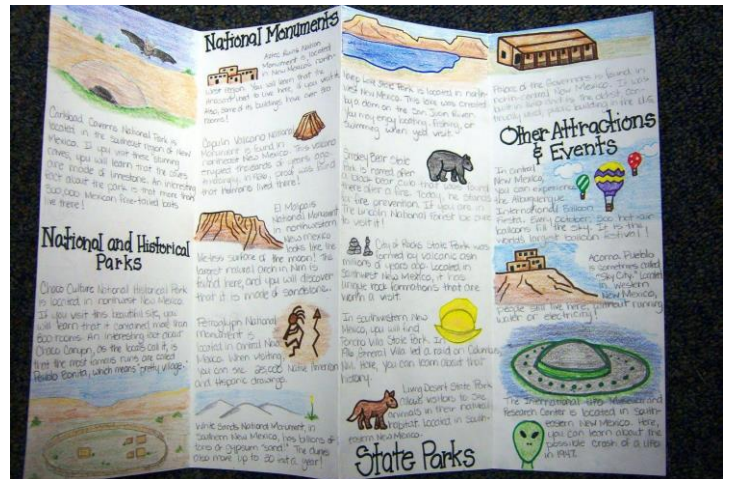 Carlsbad Caverns National Park is
located in the southeast region of New
Mexico. If you visit these stunning
caves, you will learn that the caves
are made of limestone. An interesting
fact about the park is that more than
300,000 Mexican free-tailed bats
live there!
National and Historical
Parks
Chaco Culture National Historical Park
is located in northwest New Mexico.
If you visit this beautiful site, you
will learn that it contained more than
800 rooms. An interesting fact about
Chaco Canyon, as the locals call it, is
that the most famous ruins are called
Pueblo Bonito, which means "pretty village."
National Monuments
Aztec Ruins Nation
Monument is located
in New Mexico's north-
west region. You will learn that the
lived here, if you visit it.
Also, some of its buildings have over 500
rooms!
Capulin Volcano National
Monument is found in
northeast New Mexico. This volcano
erupted thousands of years ago.
proof was found
that humans lived there!
El Malpais
National Monument
in northwestern
New Mexico
looks like the
lifeless surface of the moon! The
largest natural arch in NM is
found here, and you will discover
that it is made of sandstone.
Petroglyph National
Monument is
located in Central New
Mexico. When visiting,
you can see 25,000 Native American
and Hispanic drawings.
White Sands National Monument, in
Southern New Mexico, has billions of
tons of gypsum "sand." The dunes
also move up to 30 in a year!
State Park is located in north-
west New Mexico. This lake was created
by a dam on the San Juan River.
You may enjoy boating, fishing, or
swimming when you visit.
Smokey Bear State
Park is named after
a black bear cub that was found
there after a fire. Today, he stands
for fire prevention. If you are in
The Lincoln National Forest be sure
to visit it!
City of Rocks State Park was
formed by volcanic ash
millions of years ago. Located in
Southwest New Mexico, it has
unique rock formations that are
worth a visit.
In southwestern New
Mexico, you will find
Pancho Villa State Park. In
General Villa led a raid on Columbus,
NM. Here, you can learn about that
history.
Living Desert State Park
allows visitors to see
animals in their native
habitat. Located in south-
eastern New Mexico.
State Parks
Palace of the Governors is found in
north-central New Mexico. It was
built in and is the oldest, con-
tinuously used, public building in the U.S.
Other Attractions
& Events
In central
New Mexico,
you can experience
the Albuquerque
International Balloon
Fiesta. Early October, 500 hot air
balloons fill the sky. It is the
world's largest balloon festival!
Acoma Pueblo
is sometimes called
"Sky City." Located
in western
New Mexico,
people still live here, without running
water or electricity!
The International UFO Museum and
Research Center is located in south-
eastern New Mexico. Here,
you can learn about the
possible crash of a UFO
in 1947.